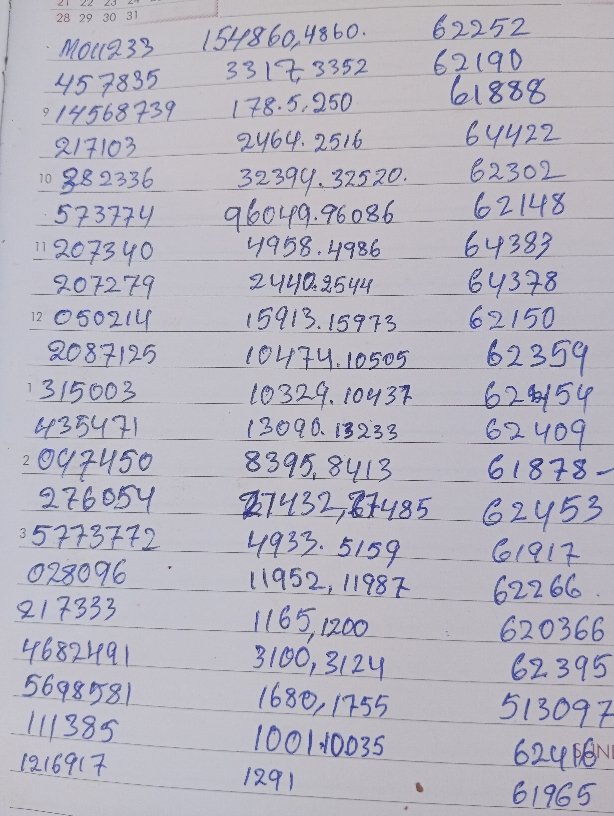 21 22 23 24
28 29 30 31
M011233 154860,4860. 62252
457835 3317,3352 62190
9 14568739 178.5.250 61888
217103 2464.2516 64422
10 382336 32394.32520. 62302
573774 96049.96086 62148
11 207340 4958.4986 64383
207279 2440.2544 64378
12 050214 15913.15973 62150
2087125 10474.10505 62359
1 315003 10329.10437
435471 13090.13233 62409
2 047450 8395,8413 61878-
276054 62453
3 5773772 4933.5159 61917
028096 11952,11987 62266.
217333 1165,1200 620366
4682491 3100,3124 62395
5698581 1680,1755 513097
111385
1216917 1291 61965